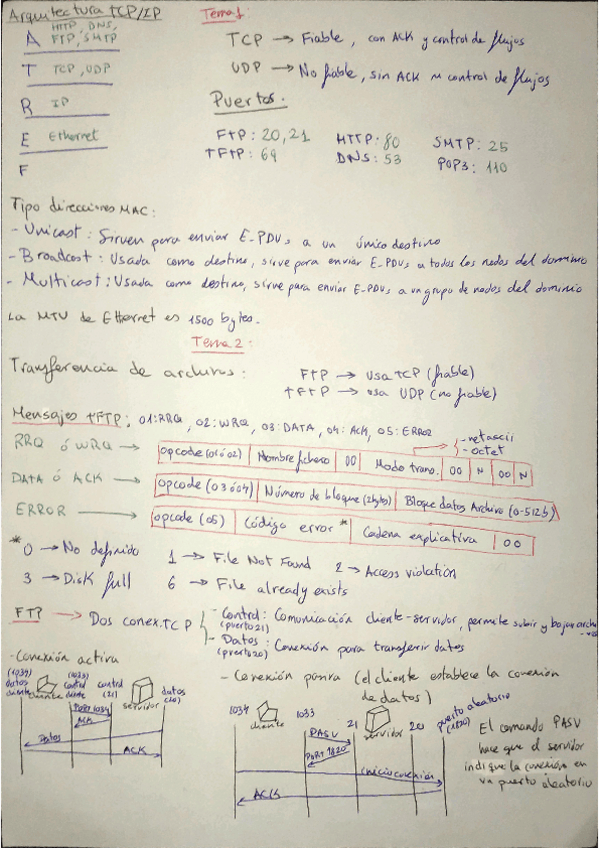 Arquitectura TCP/IP
Tema 1:
A HTTP, DNS, FTP, SMTP
T TCP, UDP
R IP
E Ethernet
F
TCP → Fiable, con ACK y control de flujos
UDP → No fiable, sin ACK ni control de flujos
Puertos:
FTP: 20, 21 HTTP: 80 SMTP: 25
TFTP: 69 DNS: 53 POP3: 110
Tipo direcciones MAC:
- Unicast: Sirven para enviar E-PDUs a un único destino
- Broadcast: Usada como destino, sirve para enviar E-PDUs a todos los nodos del dominio
- Multicast: Usada como destino, sirve para enviar E-PDUs a un grupo de nodos del dominio
La MTU de Ethernet es 1500 bytes.
Tema 2:
Transferencia de archivos: FTP → usa TCP (fiable)
TFTP → usa UDP (no fiable)
Mensajes TFTP: 01:RRQ, 02:WRQ, 03:DATA, 04:ACK, 05:ERROR
- netascii
- octet
RRQ ó WRQ → opcode (01 ó 02) | Nombre fichero | 00 | Modo trans. | 00 | N | 00 | N
DATA ó ACK → opcode (03 ó 04) | Número de bloque (2bytes) | Bloque datos Archivo (0-512b)
ERROR → opcode (05) | Código error * | Cadena explicativa | 00
* 0 → No definido 1 → File Not Found 2 → Access violation
3 → Disk full 6 → File already exists
FTP → Dos conex. TCP
- Control: Comunicación cliente-servidor, permite subir y bajar archivos
(puerto 21)
- Datos: Conexión para transferir datos
(puerto 20)
- Conexión activa
(1034) datos cliente
cliente
(1033) Control cliente
control (21)
servidor
datos (20)
PORT 1034
ACK
Datos
ACK
- Conexión pasiva (el cliente establece la conexión
de datos)
1034 cliente 1033 21 servidor 20 puerto aleatorio (1820)
PASV
PORT 1820
inicio conexión
ACK
El comando PASV
hace que el servidor
indique la conexión en
un puerto aleatorio